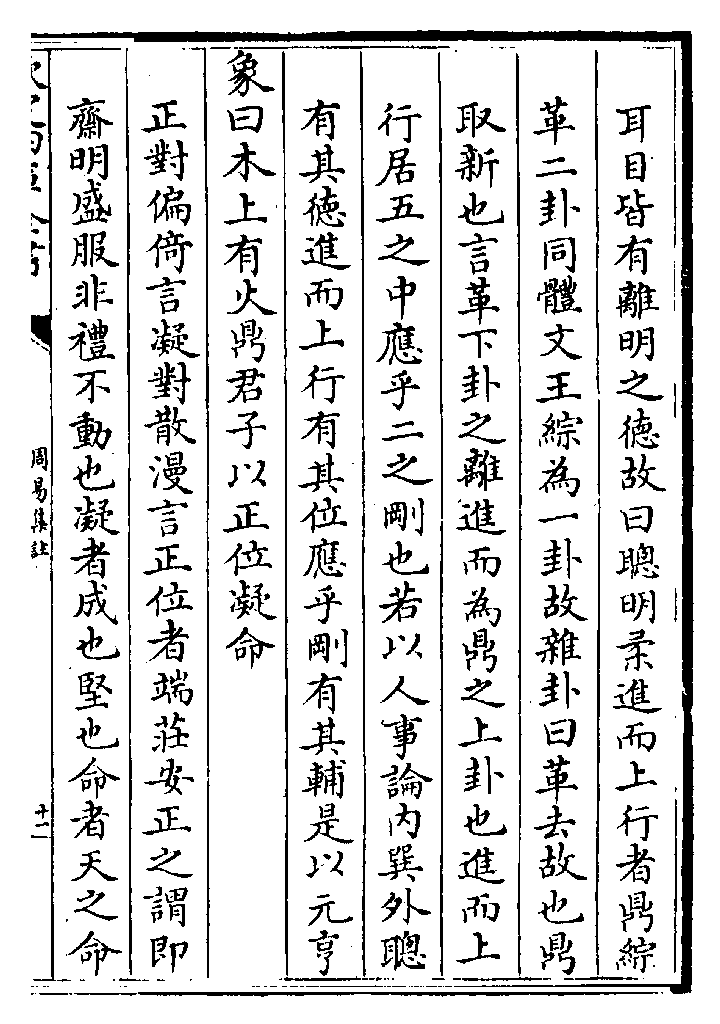 耳目皆有離明之德故曰聰明柔進而上行者鼎綜
革二卦同體文王綜為一卦故雜卦曰革去故也鼎
取新也言革下卦之離進而為鼎之上卦也進而上
行居五之中應乎二之剛也若以人事論内巽外聰
有其德進而上行有其位應乎剛有其輔是以元亨
象曰木上有火鼎君子以正位凝命
正對偏倚言凝對散漫言正位者端莊安正之謂即
齋明盛服非禮不動也凝者成也堅也命者天之命
周易集註
十一